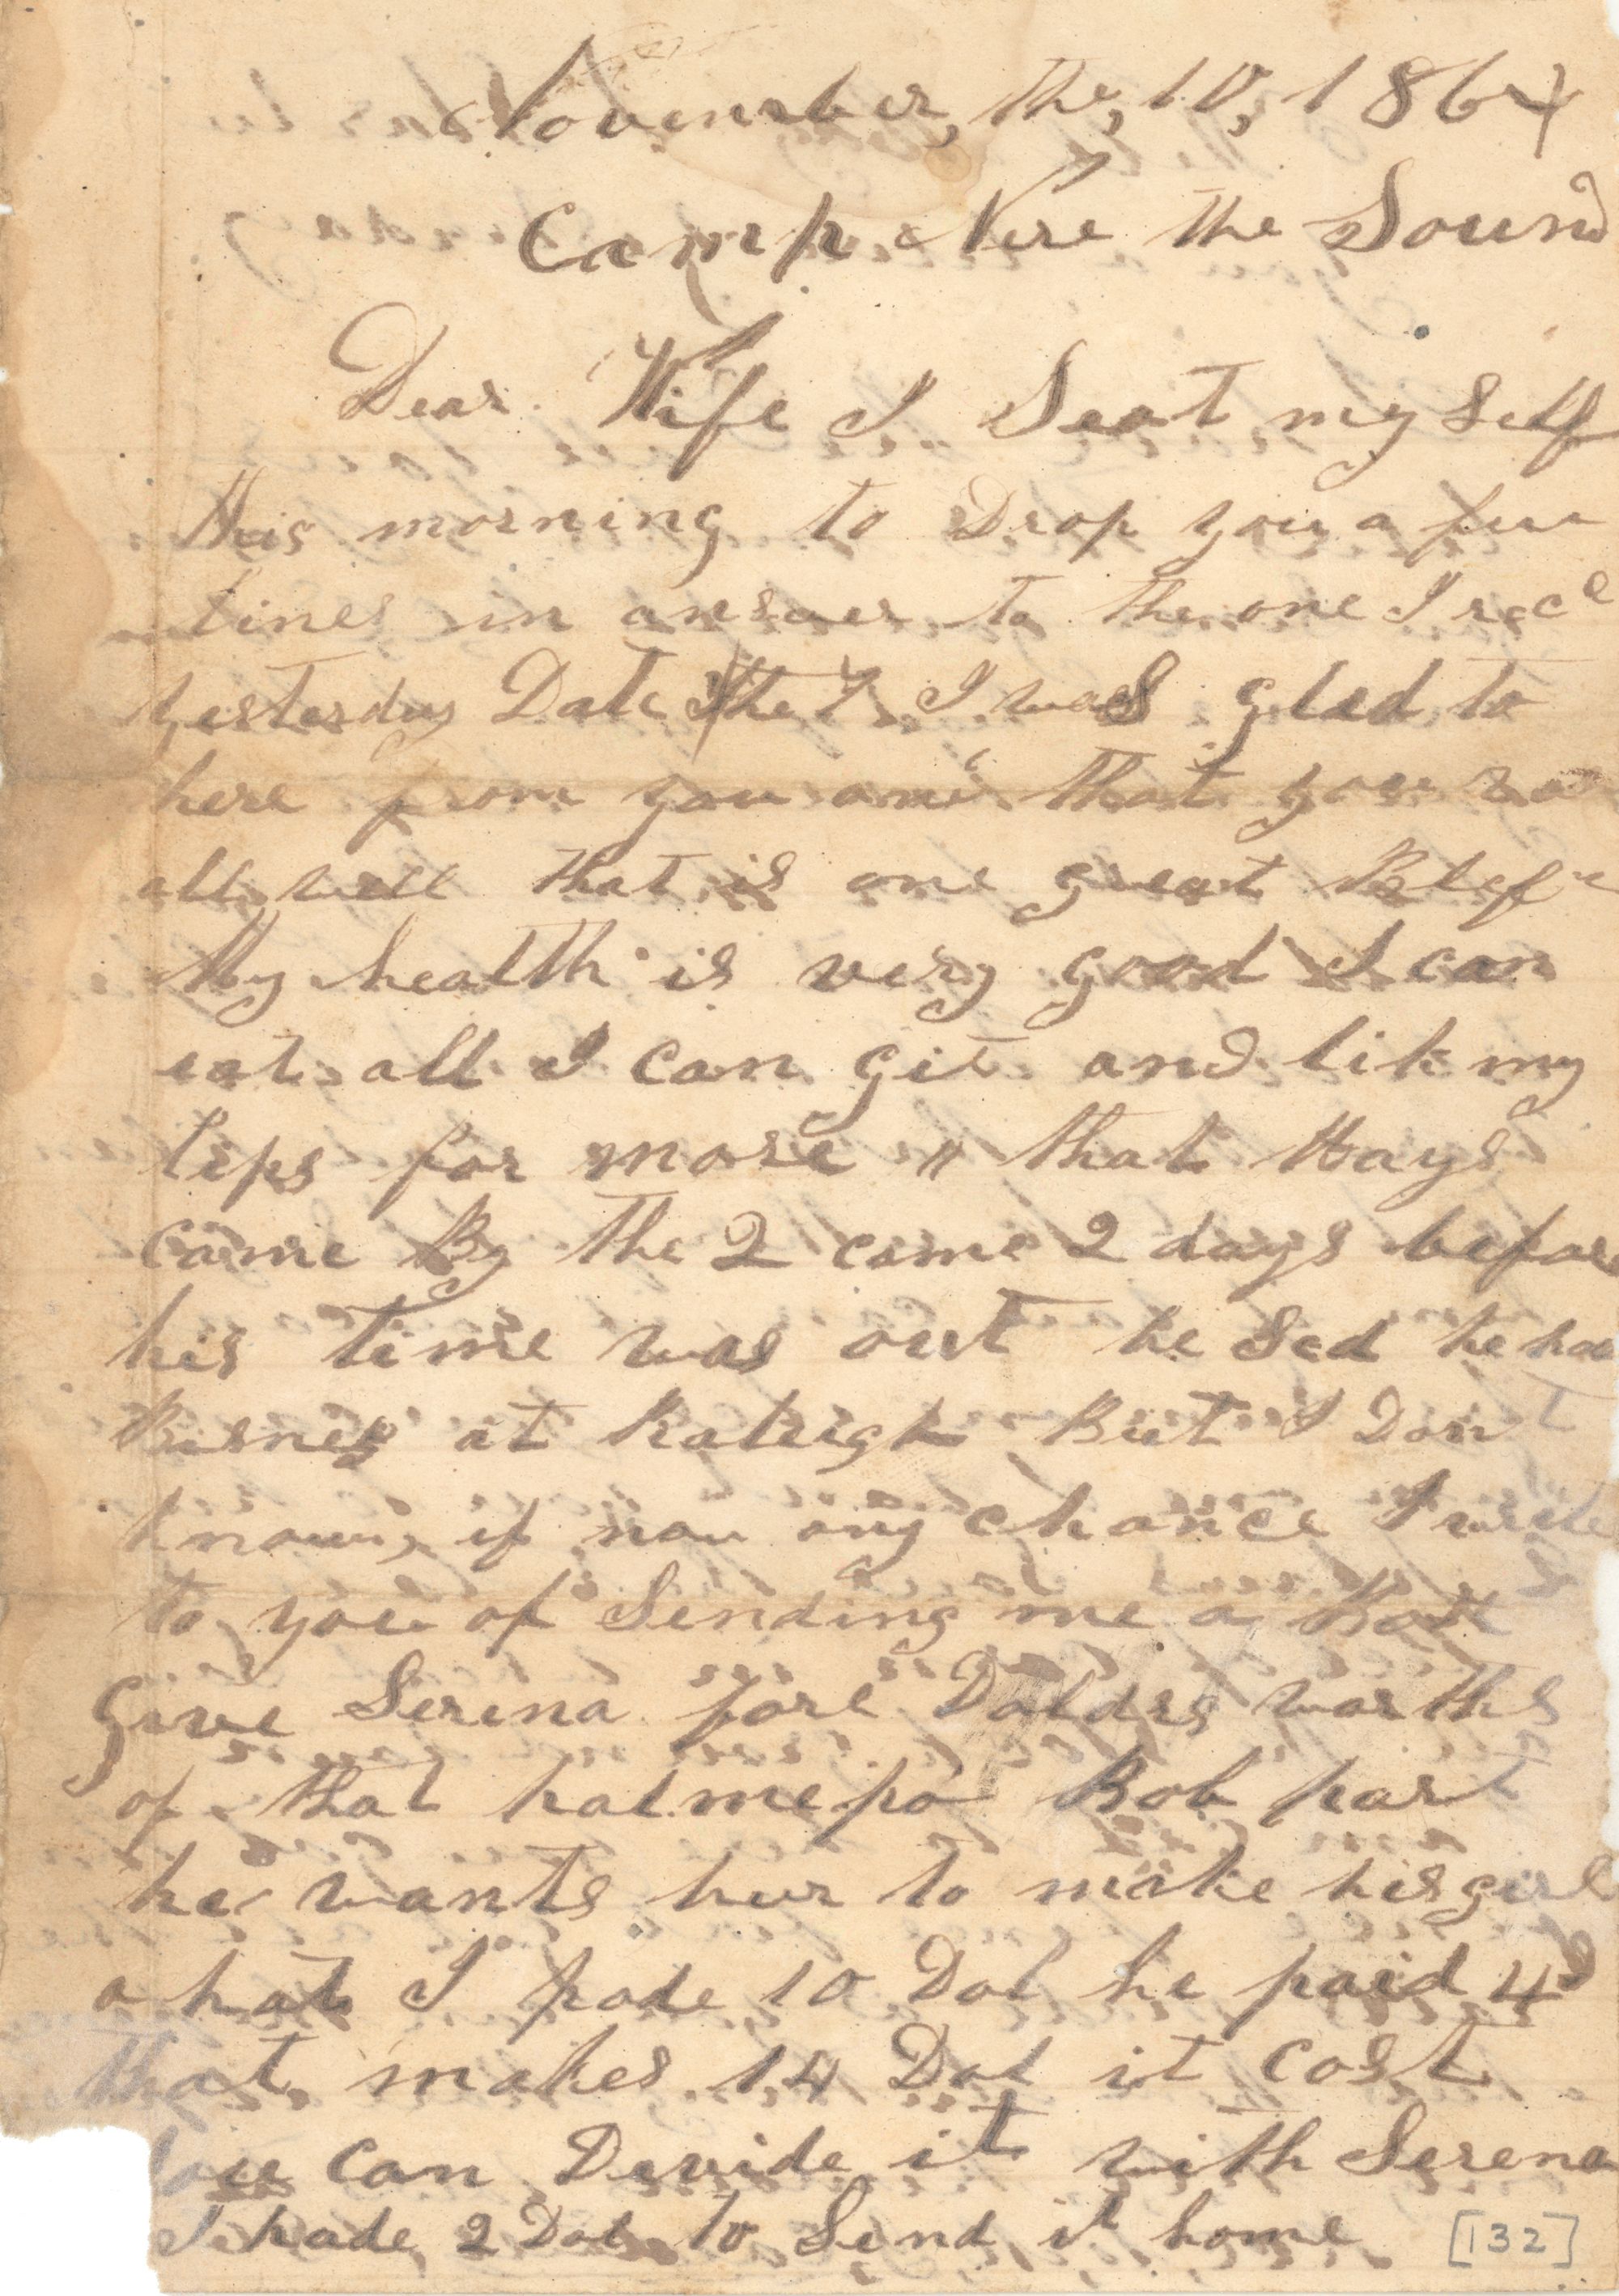 November, the, 10, 1864
Camp Nere the Sound
Dear Wife I Seat my Self
this morning to Drop you a few
lines in answer to the one I rec
yesterday Date the 7 I was glad to
here from you and that you
all well that is one great
My health is very good I can
eat all I can git and lik my
lips for more " that Hays
came By the 2 came 2 days before
his time was out he sed he had
Bisness at Raleigh But I Dont
know, if now any chance I write
to you of Sending me a
give Serena fore Dolars worths
of that Bob part
he wants hur to make his girl
a hat I pade 10 Dol he paid 4
that makes 14 Dol it cost
you can Devide it with Serena
I pade 2 Dol to Send it home
[132]